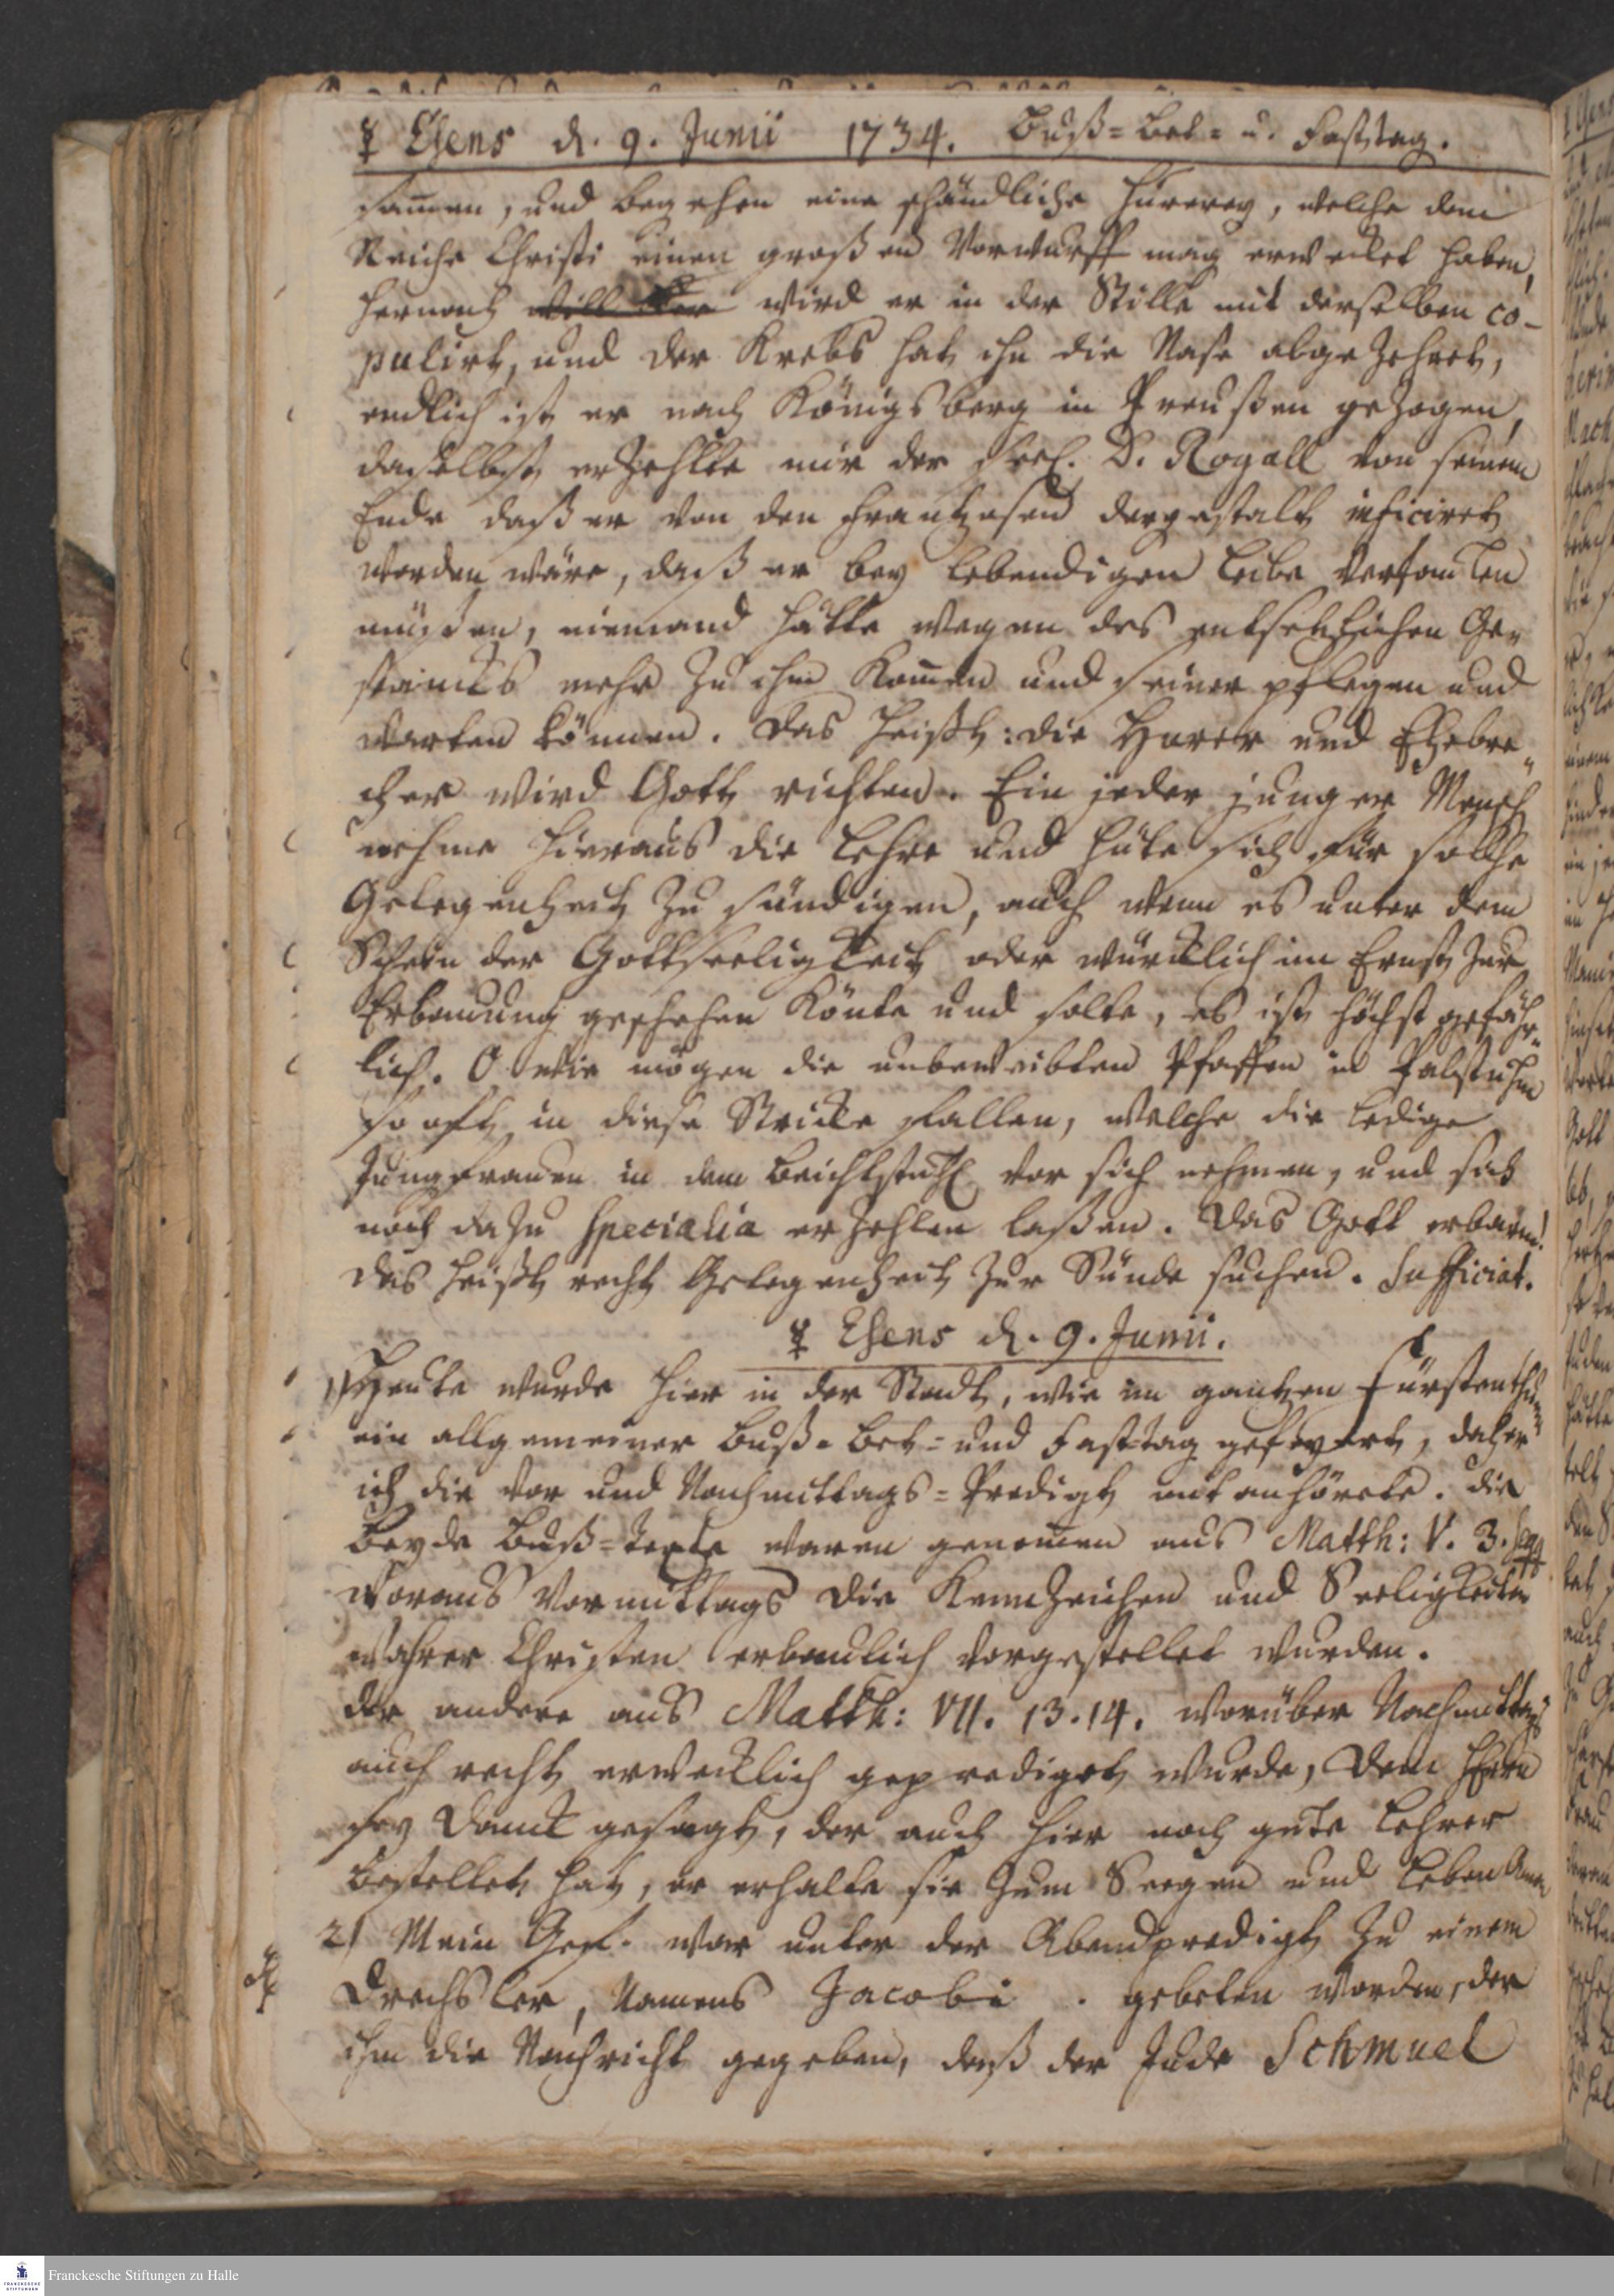 ☿ Esens d. 9. Junii 1734. Buß= Bet= u. Fasttag.
samen, und begehen eine schändliche Hurerey, welche dem
Reiche Christi einen großen Vorwurff mag erwecket haben,
hernach will wird er in der Stille mit derselben co-
pulirt, und der Krebs hat ihn die Nase abgezehret,
endlich ist er nach Königsberg in Preußen gezogen,
daselbst erzehlte mir der seel. D. Rogall von seinem
Ende daß er von den Frantzosen dergestalt inficiret
worden wäre, daß er bey lebendigen Leibe verfaulen
müßen, niemand hätte wegen des entsetzlichen Ge-
stancks mehr zu ihm kommen und seiner pflegen und
warten können. Das heißt: die Hurer und Ehebre-
cher wird Gott richten. Ein jeder junger Mensch
nehme hieraus die Lehre und hüte sich für solche
Gelegenheit zu sündigen, auch wenn es unter dem
Schein der Gottseeligkeit oder würcklich im Ernst zur
Erbauung geschehen könte und solte, es ist höchst gefähr-
lich. O wie mögen die unbeweibten Pfaffen in Pabstuhm
so oft in diese Stricke fallen, welche die ledige
Jungfrauen in dem Beichtstuhl vor sich nehmen, und sich
noch dazu specialia erzehlen laßen. Das Gott erbarm!
das heißt recht Gelegenheit zur Sünde suchen. Sufficiat.
☿ Esens d. 9. Junii.
1) Heute wurde hier in der Stadt, wie im gantzen Fürstenthum
ein allgemeiner Buß= Bet= und Fast-tag gefeyert, daher
ich die Vor und Nachmittags=Predigt mit anhörete. die
beyde Buß=Texte waren genommen aus Matth: V. 3. seqq
woraus Vormittags die Kennzeichen und Seeligkeiten
wahrer Christen erbaulich vorgestellet wurden.
der andere aus Matth: VII. 13.14. worüber Nachmittags
auch recht erwecklich geprediget wurde, dem Herrn
sey Danck gesagt, der auch hier noch gute Lehrer
bestellet hat, er erhalte sie zum Seegen und Leben Amen
2) Mein Gef. war unter der Abendpredigt zu einem
Drechsler, Namens Jacobi . gebeten worden, der
ihm die Nachricht gegeben, daß der Jude Schmuel
Franckesche Stiftungen zu Halle